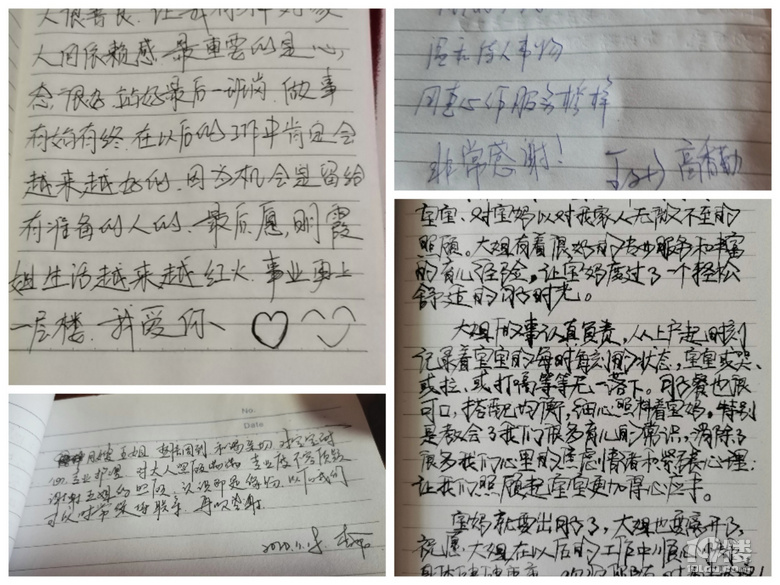 人很善良.让我有种对家
人的依赖感.最重要的是心
态很好.站好最后一班岗.做事
有始有终.在以后的工作中肯定会
越来越好的.因为机会是留给
有准备的人的.最后愿,明霞
姐生活越来越红火.事业更上
一层楼.我爱你、
温和待人事物
用真心作服务榜样
非常感谢!
高香勤
宝宝、对宝妈以对我家人无微不至的
照顾。大姐有着很好的专业服务和丰富
的育儿经验。让宝妈度过了一个轻松
舒适的月子时光。
大姐做事认真负责,从上户起时刻
记录着宝宝的每时每刻的状态,宝宝或哭、
或拉、或打嗝等等无一落下。月子餐也很
可口,搭配均衡,细心照料着宝妈。特别
是教会了我们很多育儿的常识,消除了
很多我们心里的焦虑情绪和紧张心理,
让我们照顾起宝宝更加得心应手。
宝妈就要出月了,大姐也要离开了,
祝愿大姐在以后的工作中顺
No.
Date
对宝宝
专业护理 对大人照顾
谢谢 的照顾
可以时常 联系 再次感谢
19楼
19lou.com